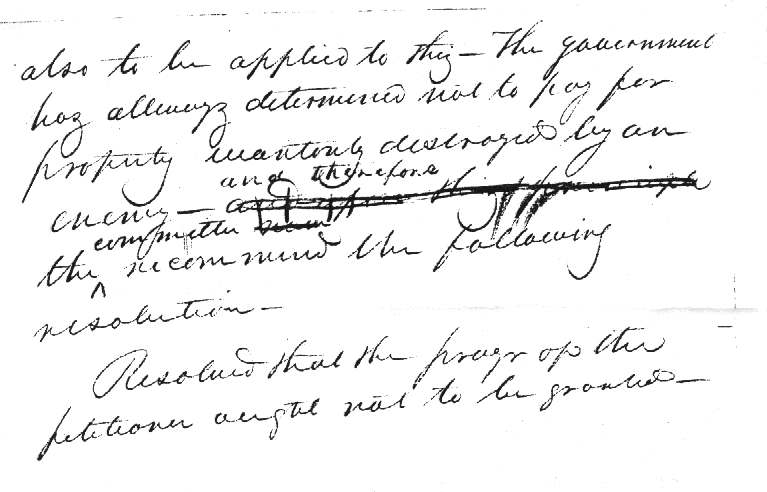 also to be applied to this – The government
has allways determined not to pay for
property wantonly destroyed by an
and therefore
enemy –
committee
the recommend the following
resolution –
Resolved that the prayr of the
petitioner ought not to be granted –